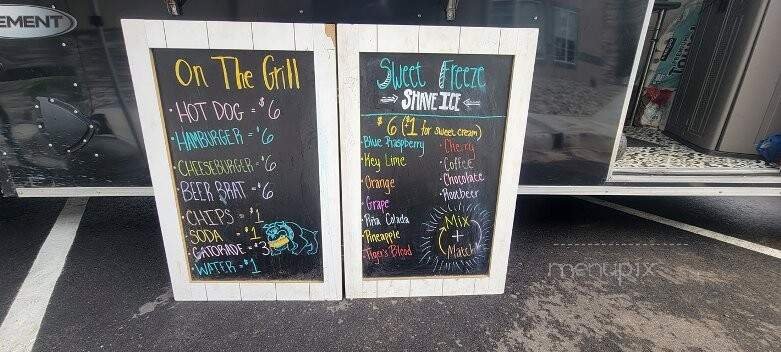 EMENT
On The Grill
· HOT DOG = $6
· HAMBURGER = $6
· CHEESEBURGER = $6
· BEER BRAT = $6
· CHIPS = $1
· SODA = $1
· GATORADE = $3
· WATER = $1
Sweet Freeze
SHAVE ICE
$6 ($1 for sweet cream)
· Blue Raspberry
· Key Lime
· Orange
· Grape
· Piña Colada
· Pineapple
· Tiger's Blood
· Cherry
· Coffee
· Chocolate
· Rootbeer
Mix
+
Match
menupix